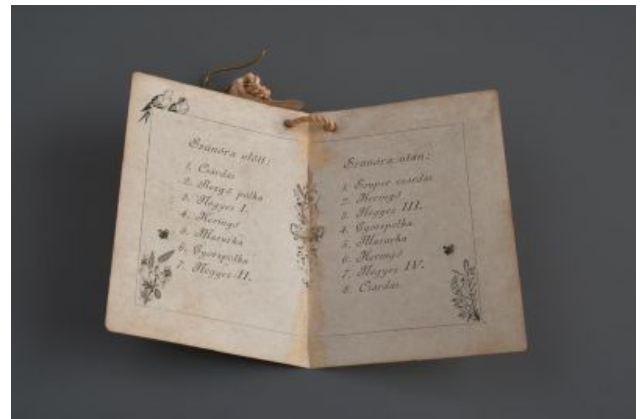 Szünóra előtt:
1. Csárdás
2. Rezgő polka
3. Négyes I.
4. Keringő
5. Mazurka
6. Gyorspolka
7. Négyes II.
Szünóra után:
1. Souper csárdás
2. Keringő
3. Négyes III.
4. Gyorspolka
5. Mazurka
6. Keringő
7. Négyes IV.
8. Csárdás.